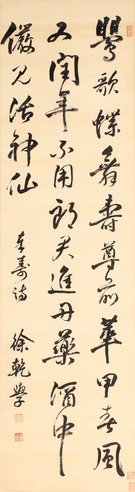 鶯歌蝶舞壽尊前華甲春風
又閏年不用郎君進丹藥酒中
儼見活神仙
壽詩 徐乾學